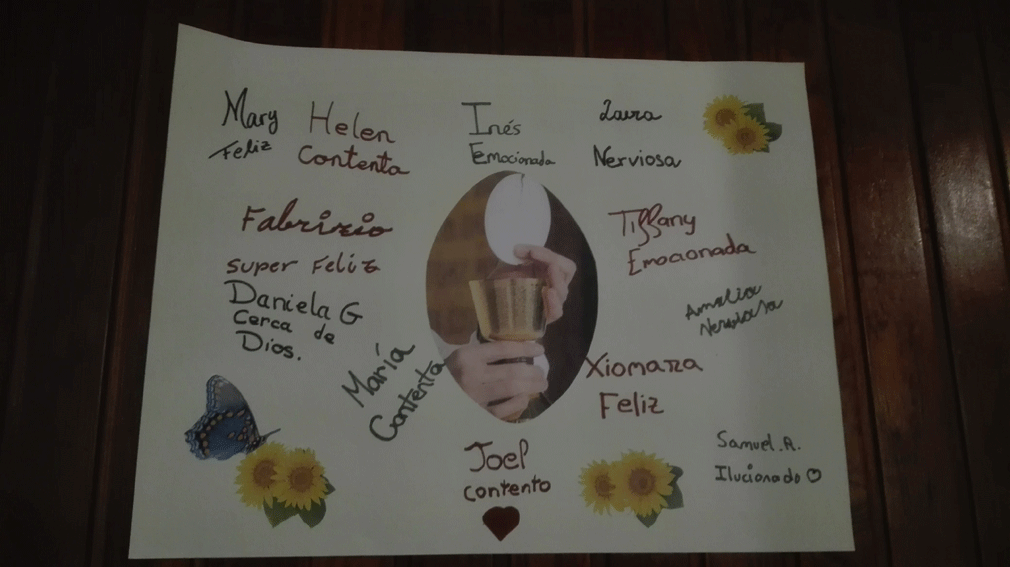 Mary
Feliz
Helen
Contenta
Inés
Emocionada
Laura
Nerviosa
Fabrizio
super Feliz
Tiffany
Emocionada
Daniela G
Cerca de
Dios.
Amalia
Nerviosa
María
Contenta
Xiomara
Feliz
Joel
contento
Samuel.R.
Ilucionado